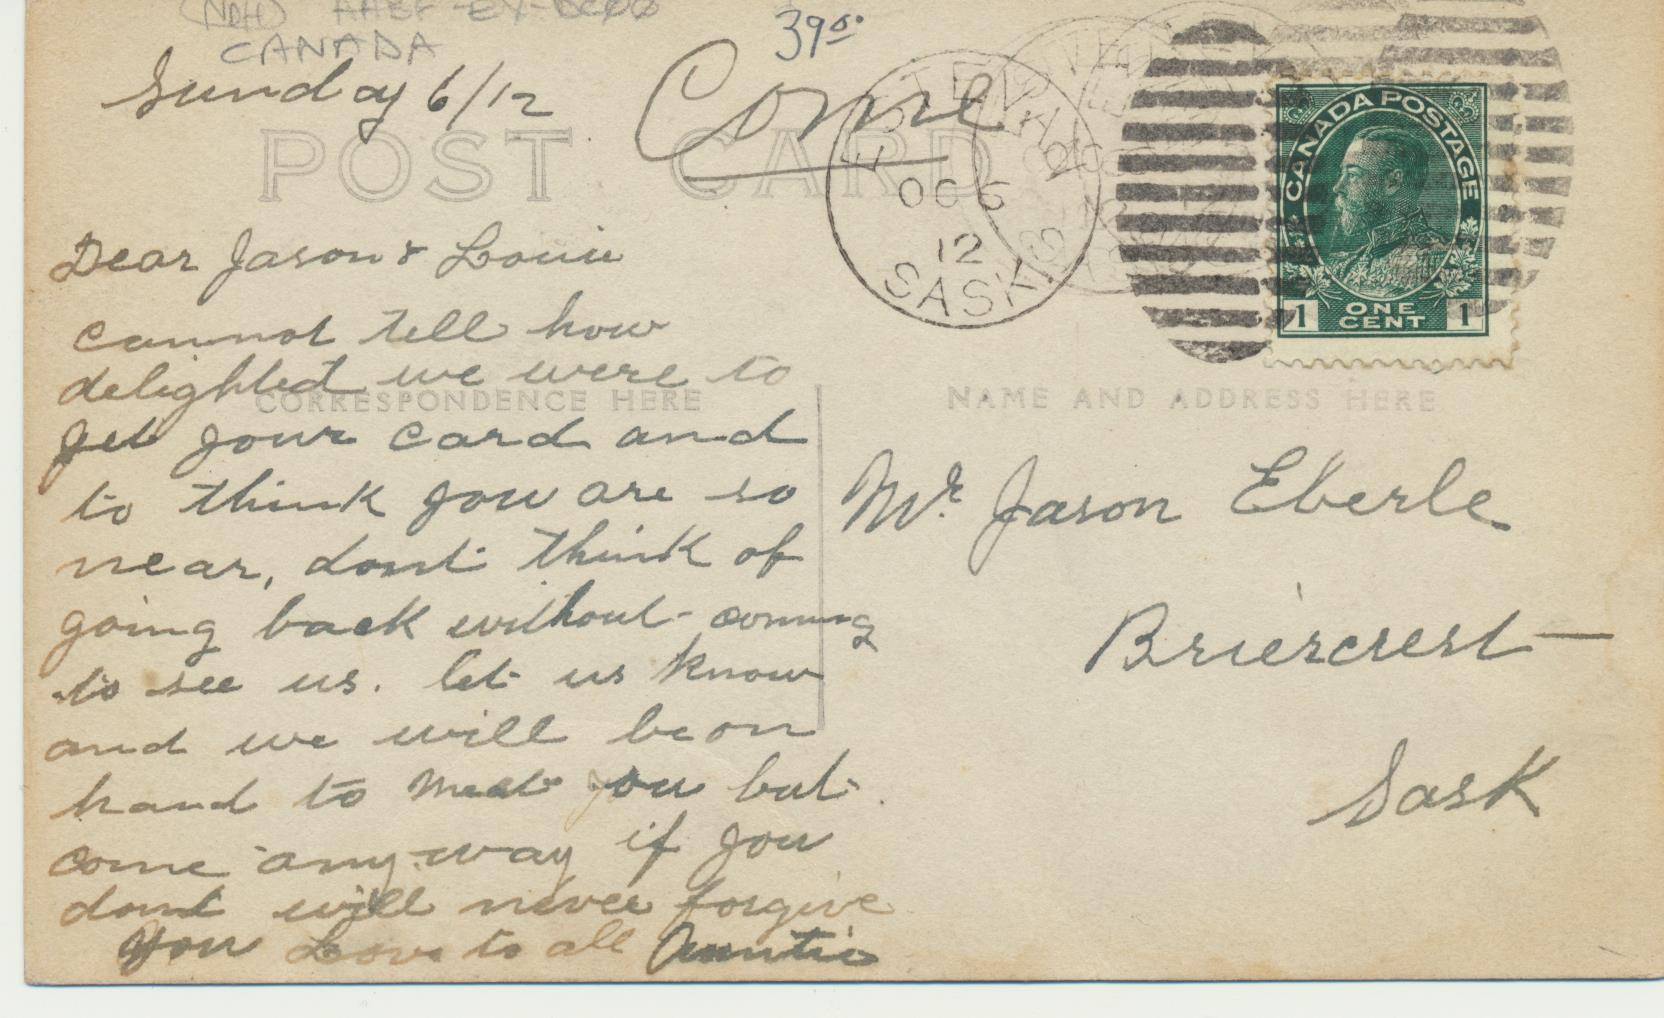 CANADA
39 50
Sunday 6/12
Come
POST CARD
ESTEVAN
OC 5
12
SASK
CANADA POSTAGE
1 ONE CENT 1
Dear Jason & Louie
cannot tell how
delighted we were to
get your card and
to think you are so
near, dont think of
going back without coming
to see us. let us know
and we will be on
hand to meet you but
come any way if you
dont will never forgive
you Love to all Auntie
CORRESPONDENCE HERE
NAME AND ADDRESS HERE
Mr. Jason Eberle
Briercrest
Sask